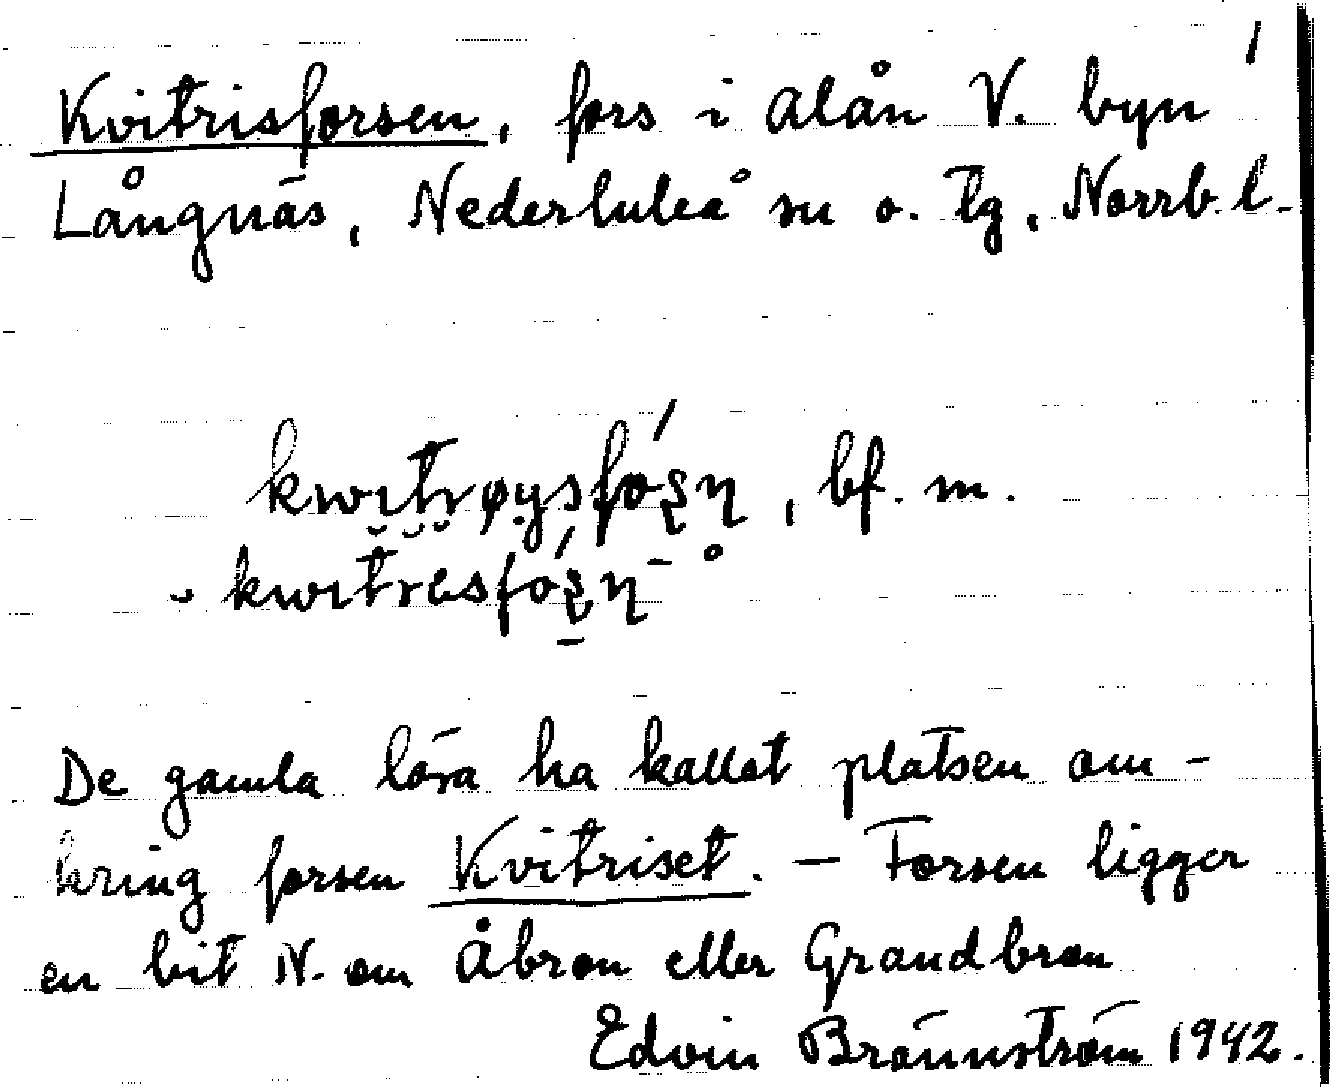 1
Kvitrisforsen, fors i Alån V. byn
Långnäs, Nederluleå sn o. tg, Norrb. l.
bf. m.
De gamla lära ha kallat platsen om-
kring forsen Kvitriset. — Forsen ligger
en bit N. om Åbron eller Grandbron
Edvin Brännström 1942.